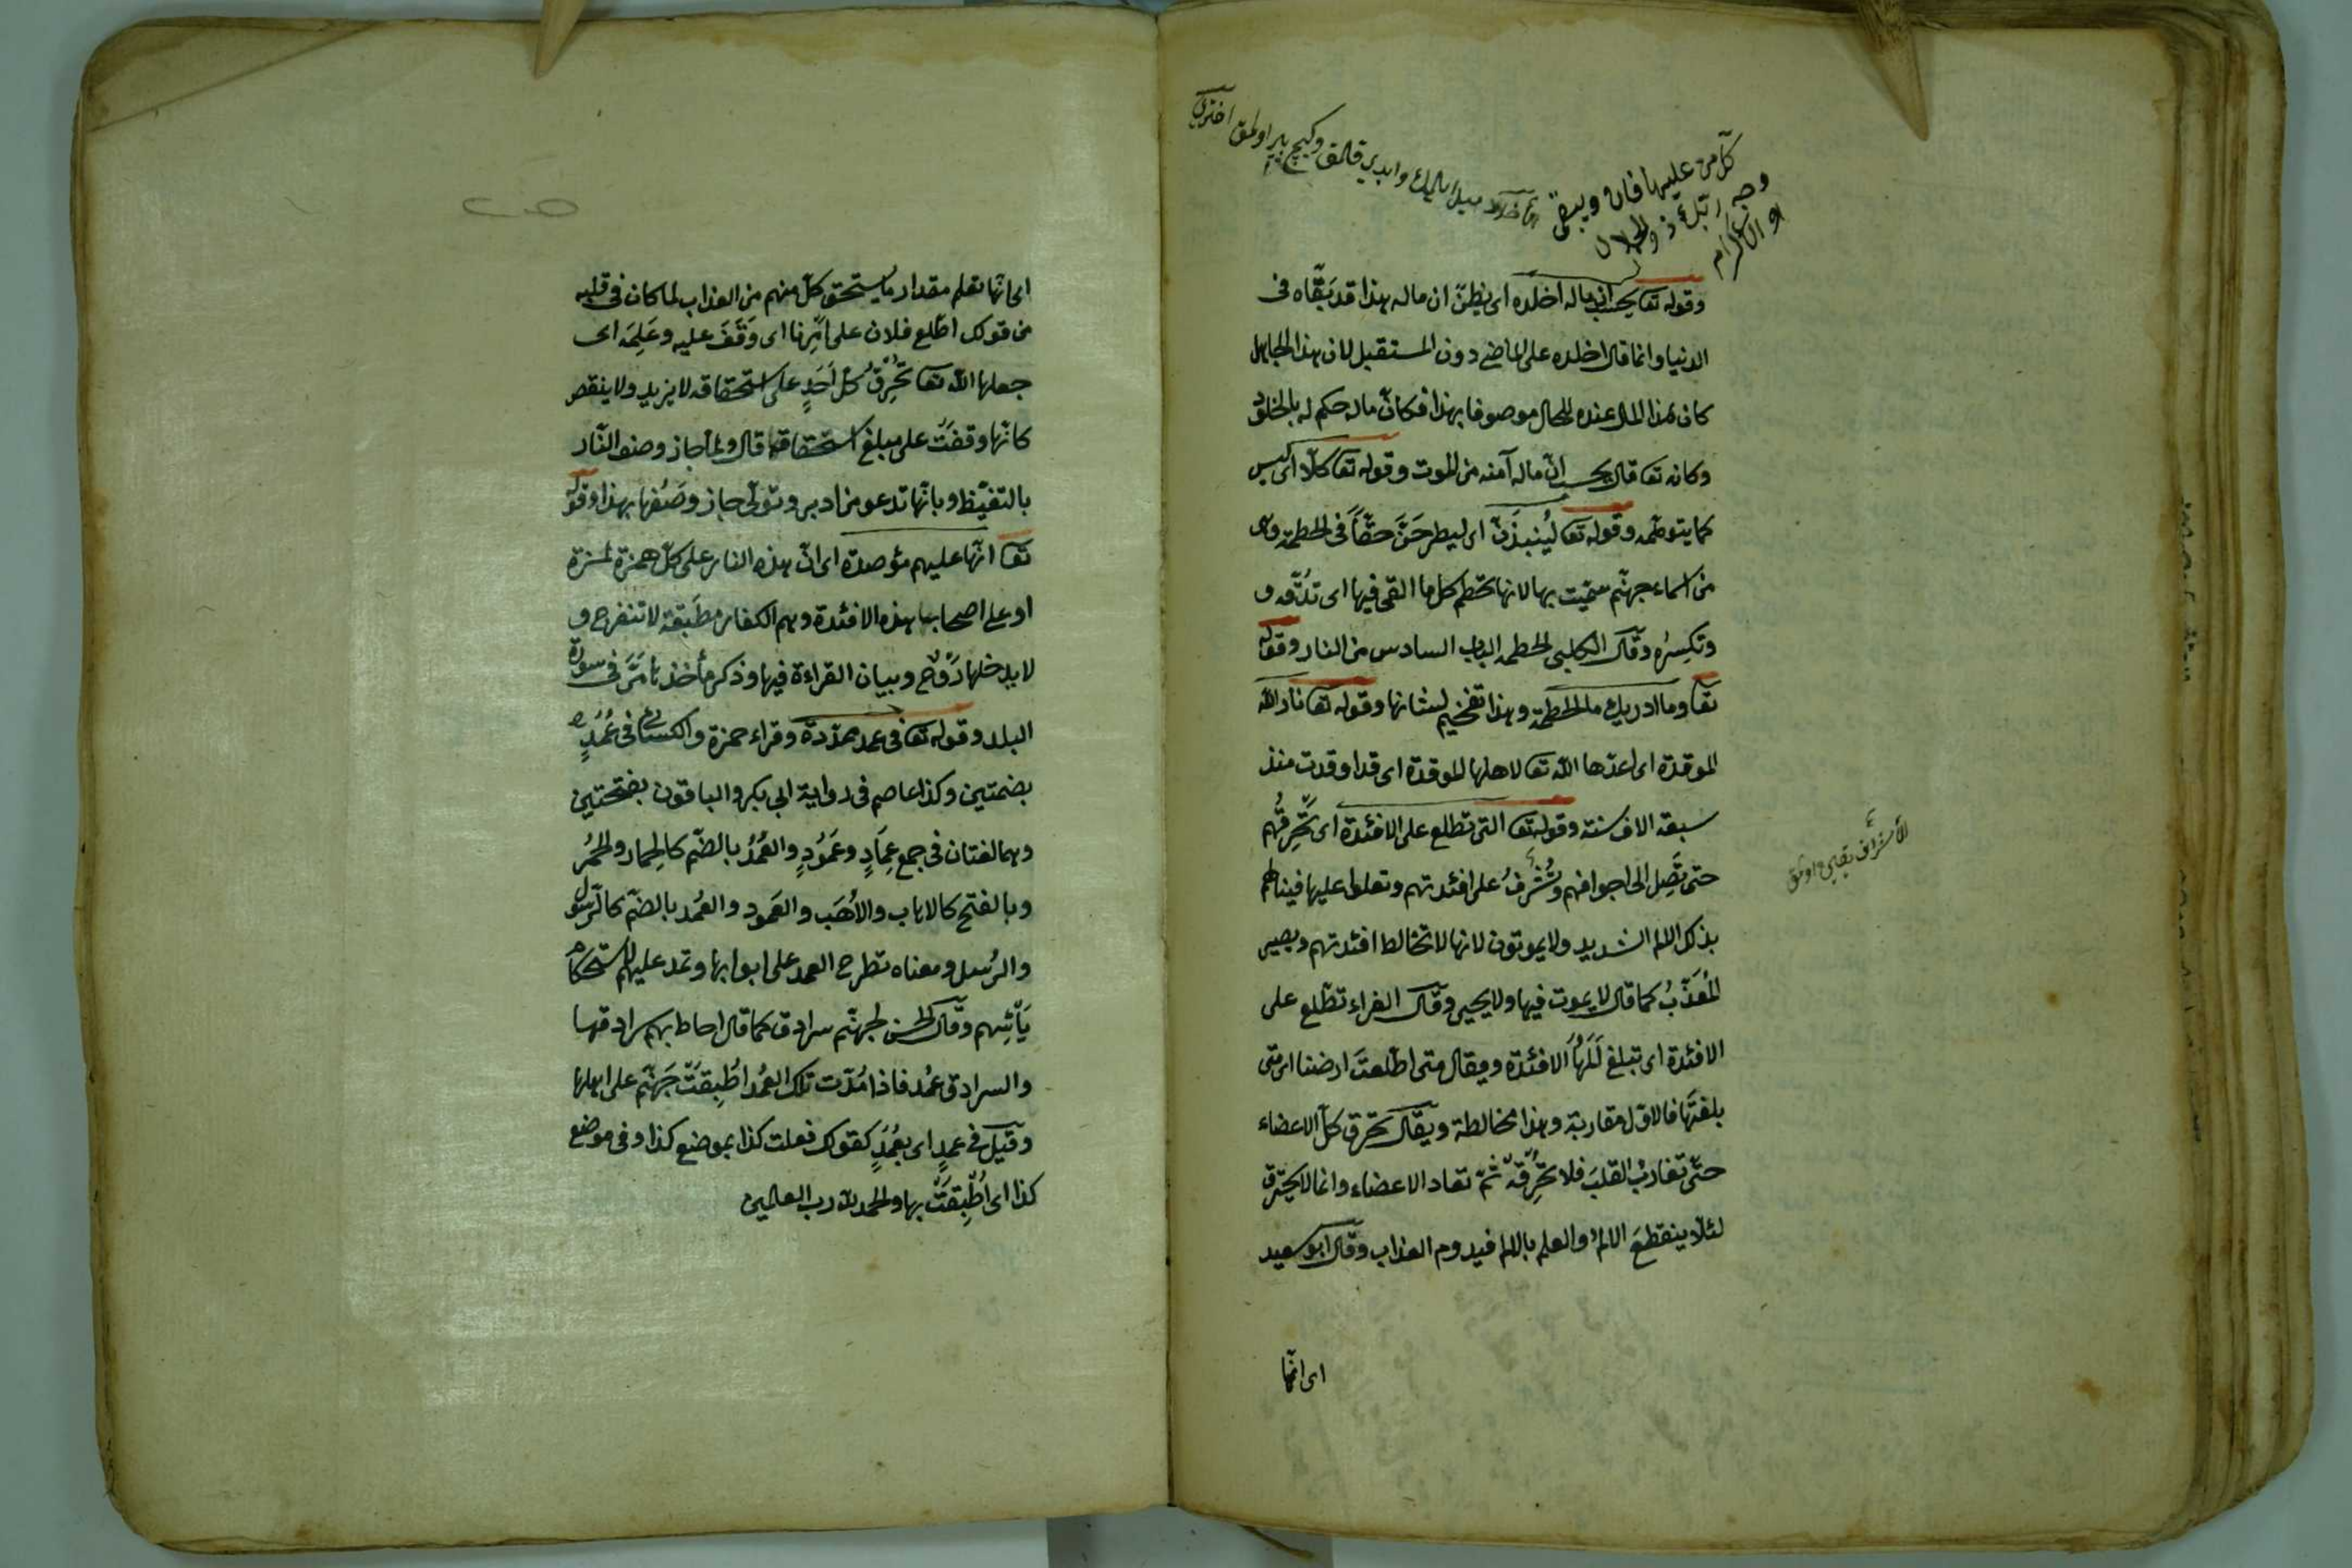 كل من عليها فان ويبقى
وجه ربك ذو الجلال
والاكرام
وقوله تعا يحسب ان ماله اخلده اى يظنّ ان ماله هذا قد يبقّاه فى
الدنيا وانما قال اخلده على الماضى دون المستقبل لان هذا الجاهل
كان هذا المال عنده للحال موصوفا بهذا فكانّ ماله حكم له بالخلود
وكانه تعا قال يحسب انّ ماله آمنه من الموت وقوله تعا كلّا اى ليس
كما يتوهّمه وقوله تعا لَيُنبذَنّ اى ليطرحَنَّ حقّاً فى الحطمة وهى
من اسماء جهنّم سمّيت بها لانها تحطم كل ما القى فيها اى تدُقّه و
وتكسِرُه وقال الكلبى الحطمه الباب السادس من النار وقوله
تعا وما ادريك ما الحطمة وهذا تفخيم لشانها وقوله تعا نار الله
الموقدة اى اعدّها الله تعا لاهلها الموقدة اى قد اوقدت منذ
سبعة الاف سنة وقوله تعا التى تطلع على الافئدة اى تحرِقُهم
حتى تَصِل الى اجوافهم وتُشْرفُ على افئدتهم وتعلوا عليها فيناطهم
بذلك الالم الشديد ولا يموتون لانها لا تخالط افئدتهم ويصير
المُعَذّبُ كما قال لا يموت فيها ولا يحيى وقال الفراء تطّلع على
الافئدة اى تبلغ المَهَا الافئدة ويقال متى اطّلعتَ ارضنا اى متى
بلغتَها فالاول مقاربة وهذا مخالطة ويقال تحرق كلّ الاعضاء
حتّى تقاربْ القلبَ فلا تحرِقُه ثمّ تعاد الاعضاء وانما لا يحترق
لئلّا ينقطعَ الالمُ والعلم بالالم فيدوم العذاب وقال ابو سعيد
اى انّها
اى انّها تعلم مقدار ما يستحق كلّ منهم من العذاب لما كان فى قلبه
من قولك اطّلع فلان على امْرِنا اى وَقَفَ عليه وعَلِمَه اى
جعلها الله تعا تُحْرِقُ كلّ اَحَدٍ على استحقاقه لا يزيد ولا ينقص
كانّها وقفَتْ على مبلغ استحقاقه قال ولما جاز وصف النّار
بالتغيّظ وبانّها تدعو من ادبر وتولّى جاز وصَفُها بهذا وقوله
تعا انّها عليهم مؤصدة اى انّ هذه النار على كلّ همزة لمزة
او على اصحاب هذه الافئدة وهم الكفار مطبَقة لا تنفرج و
لا يدخلها رَوْح وبيان القراءة فيها وذكر مأخذها مَرّ فى سورة
البلد وقوله تعا فى عمد ممدّدة وقراء حمزة والكسائى فى عُمُدٍ
بضمتين وكذا عاصم فى رواية ابى بكر والباقون بفتحتين
وهما لغتان فى جمع عِمَادٍ وعَمُودٍ والعُمُدُ بالضّم كالحِمار والحُمُر
وبالفتح كالاهاب والاُهَب والعَمود والعُمد بالضّم كالرّسول
والرُسُل ومعناه تطرح العمد على ابوابها وتمد عليهم لاستحكام
يأسِهم وقال الحسن لجهنّم سرادق كما قال احاط بهم سرادقها
والسرادق عمُد فاذا مُدّت تلك العُمُد اطُبِقَتْ جَهنّم على اهلها
وقيل فى عمدٍ اى بعُمُدٍ كقولك فعلت كذا بموضع كذا وفى موضع
كذا اى اُطْبِقَتْ بها والحمد لله رب العالمين